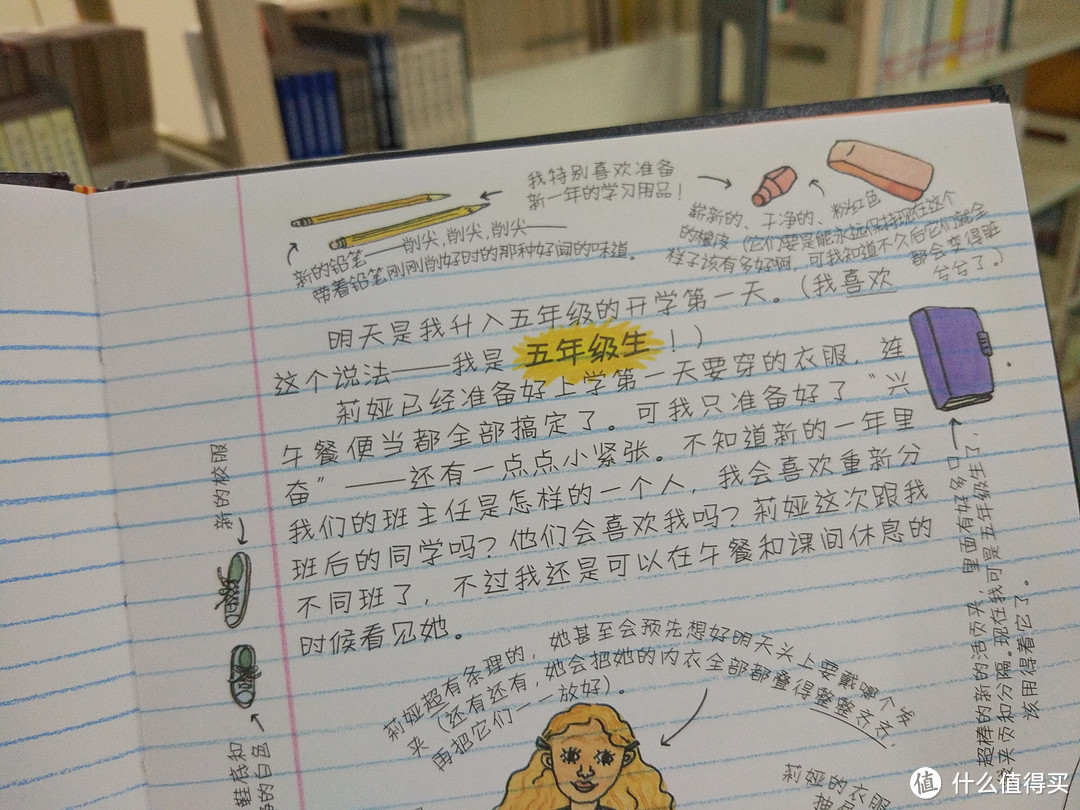 我特别喜欢准备
新一年的学习用品！
崭新的、干净的、粉红色
的橡皮（它们要是能永远保持现在这个
样子该有多好啊，可我知道不久后它们就全
都会变得脏
兮兮了。）
新的铅笔——削尖，削尖，削尖——
带着铅笔刚刚削好时的那种好闻的味道。
明天是我升入五年级的开学第一天。（我喜欢
这个说法——我是五年级生！）
莉娅已经准备好上学第一天要穿的衣服，连
午餐便当都全部搞定了。可我只准备好了“兴
奋”——还有一点点小紧张。不知道新的一年里
我们的班主任是怎样的一个人，我会喜欢重新分
班后的同学吗？他们会喜欢我吗？莉娅这次跟我
不同班了，不过我还是可以在午餐和课间休息的
时候看见她。
新的校服
鞋底和
的白色
超棒的新的活页夹，里面有好多只
夹页和分隔。现在我可是五年级生了，
该用得着它了。
莉娅超有条理的，她甚至会预先想好明天头上要戴哪个发
夹（还有还有，她会把她的内衣全部都叠得整整齐齐，
再把它们一一放好）。
莉娅的衣服
值 什么值得买